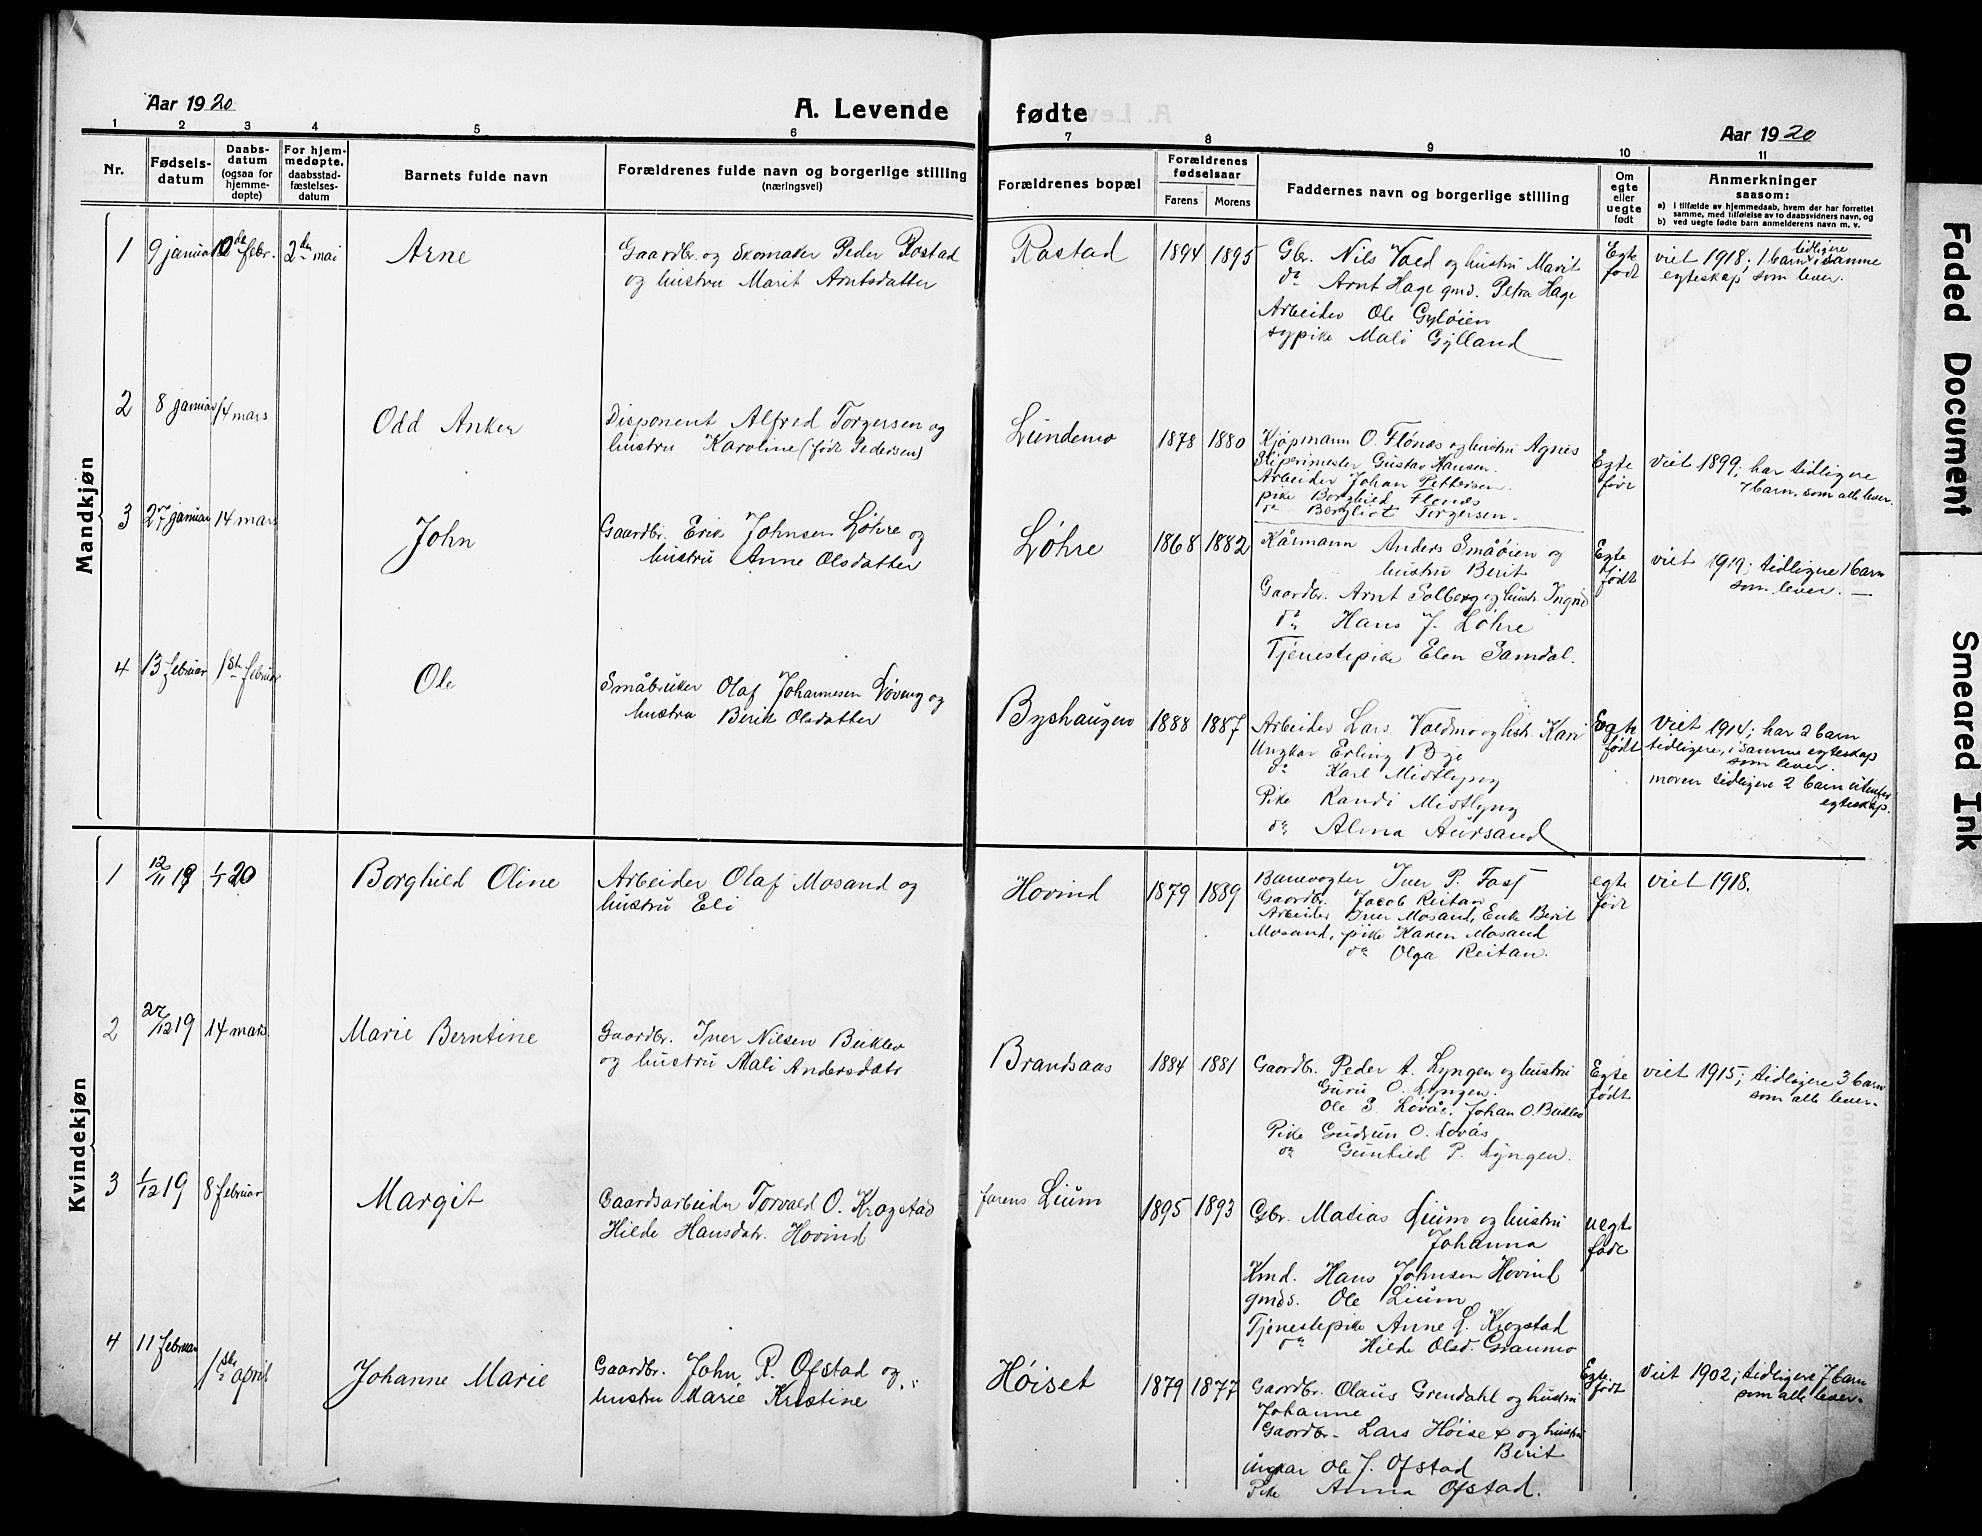 Aar 1920
A. Levende fødte
Aar 1920
1 2 3 4 5 6 7 8 9 10 11
Nr.
Fødsels-
datum
Daabs-
datum
(ogsaa for
hjemme-
døpte)
For hjem-
medøpte,
daabsstad-
fæstelses-
datum
Barnets fulde navn
Forældrenes fulde navn og borgerlige stilling
(næringsvei)
Forældrenes bopæl
Forældrenes
fødselsaar
Farens Morens
Faddernes navn og borgerlige stilling
Om
egte
eller
uegte
født
Anmerkninger
saasom:
a) i tilfælde av hjemmedaab, hvem der har forrettet
samme, med tilføielse av to daabsvidners navn, og
b) ved uegte fødte barn anmelderens navn m. v.
Mandkjøn
1 9 januar 10de febr. 2den mai
Arne
Gaardbr. og skomaker Peder Rostad
og hustru Marit Arntsdatter
Rostad
1894 1895
Gbr. Nils Vold og hustru Marit
do Arnt Hage gmd. Petra Hage
Arbeider Ole Gyløien
sypike Mali Gylland
Egte
født
viet 1918. 1 barn tidligere i samme
egteskap, som lever.
2 8 januar 14 mars
Odd Anker
Disponent Alfred Torgersen og
hustru Karoline (født Pedersen)
Lundemo
1878 1880
Kjøpmann O. Flønes og hustru Agnis
Sliperimester Gustav Hansen.
Arbeider Johan Pettersen.
pike Borghild Flønes
do Bergliot Torgersen.
Egte
født
viet 1899; har tidligere
7 barn, som alle lever.
3 27 januar 14 mars
John
Gaardbr. Erik Johnsen Løhre og
hustru Anne Olsdatter
Løhre
1868 1882
Kårmann Anders Småøien og
hustru Berit
Gaardbr. Arnt Solberg og hustr. Ingrid
do Hans J. Løhre
Tjenestepike Elen Samdal.
Egte
født
viet 1917; tidligere 1 barn
som lever.
4 13 februar 1ste februar
Ole
Småbruker Olaf Johannesen Løveng og
hustru Berit Olsdatter
Byshaugen
1888 1887
Arbeider Lars Voldmo og hstr. Kari
Ungkar Erling Bye
do Karl Midtlyng
Pike Randi Midtlyng
do Alma Aursand
Egte
født
Viet 1914; har 2 barn
tidligere, i samme egteskap
som lever.
moren tidligere 2 barn utenfor
egteskap.
Kvindekjøn
1 12/11 19 1/1 20
Borghild Oline
Arbeider Olaf Mosand og
hustru Eli
Hovind
1879 1889
Banevogter Iver P. Foss
Gaardbr. Jacob Reitan
Arbeider Iver Mosand, Enke Berit
Mosand, pike Karen Mosand
do Olga Reitan.
egte
født
viet 1918.
2 27/12 19 14 mars
Marie Berntine
Gaardbr. Iver Nilsen Buklev
og hustru Mali Andersdatr
Brandsaas
1884 1881
Gaardbr. Peder A. Lyngen og hustru
Guru O. Lyngen.
Ole E. Løvås. Johan O. Buklev
Pike Gudrun O. Løvås
do Gunhild P. Lyngen.
Egte
født
viet 1915; tidligere 3 barn
som alle lever.
3 1/12 19 8 februar
Margit
Gaardsarbeider Torvald O. Krogstad
Hilde Hansdtr. Hovind
farens Lium
1895 1893
Gbr. Matias Lium og hustru
Johanna
Kmd. Hans Johnsen Hovind
gmds. Ole Lium
Tjenestepike Anne O. Krogstad
do Hilde Olsd. Graumo
uegte
født
4 11 februar 1ste april
Johanne Marie
Gaardbr. John R. Ofstad og
hustru Marie Kristine
Høiset
1879 1877
Gaardbr. Olaus Grendahl og hustru
Johanne
Gaardbr. Lars Høiset og hustru
Berit
ungkar Ole J. Ofstad
Pike Anna Ofstad.
Egte
født
Viet 1902; tidligere 7 barn
som alle lever.
Faded Document
Smeared Ink